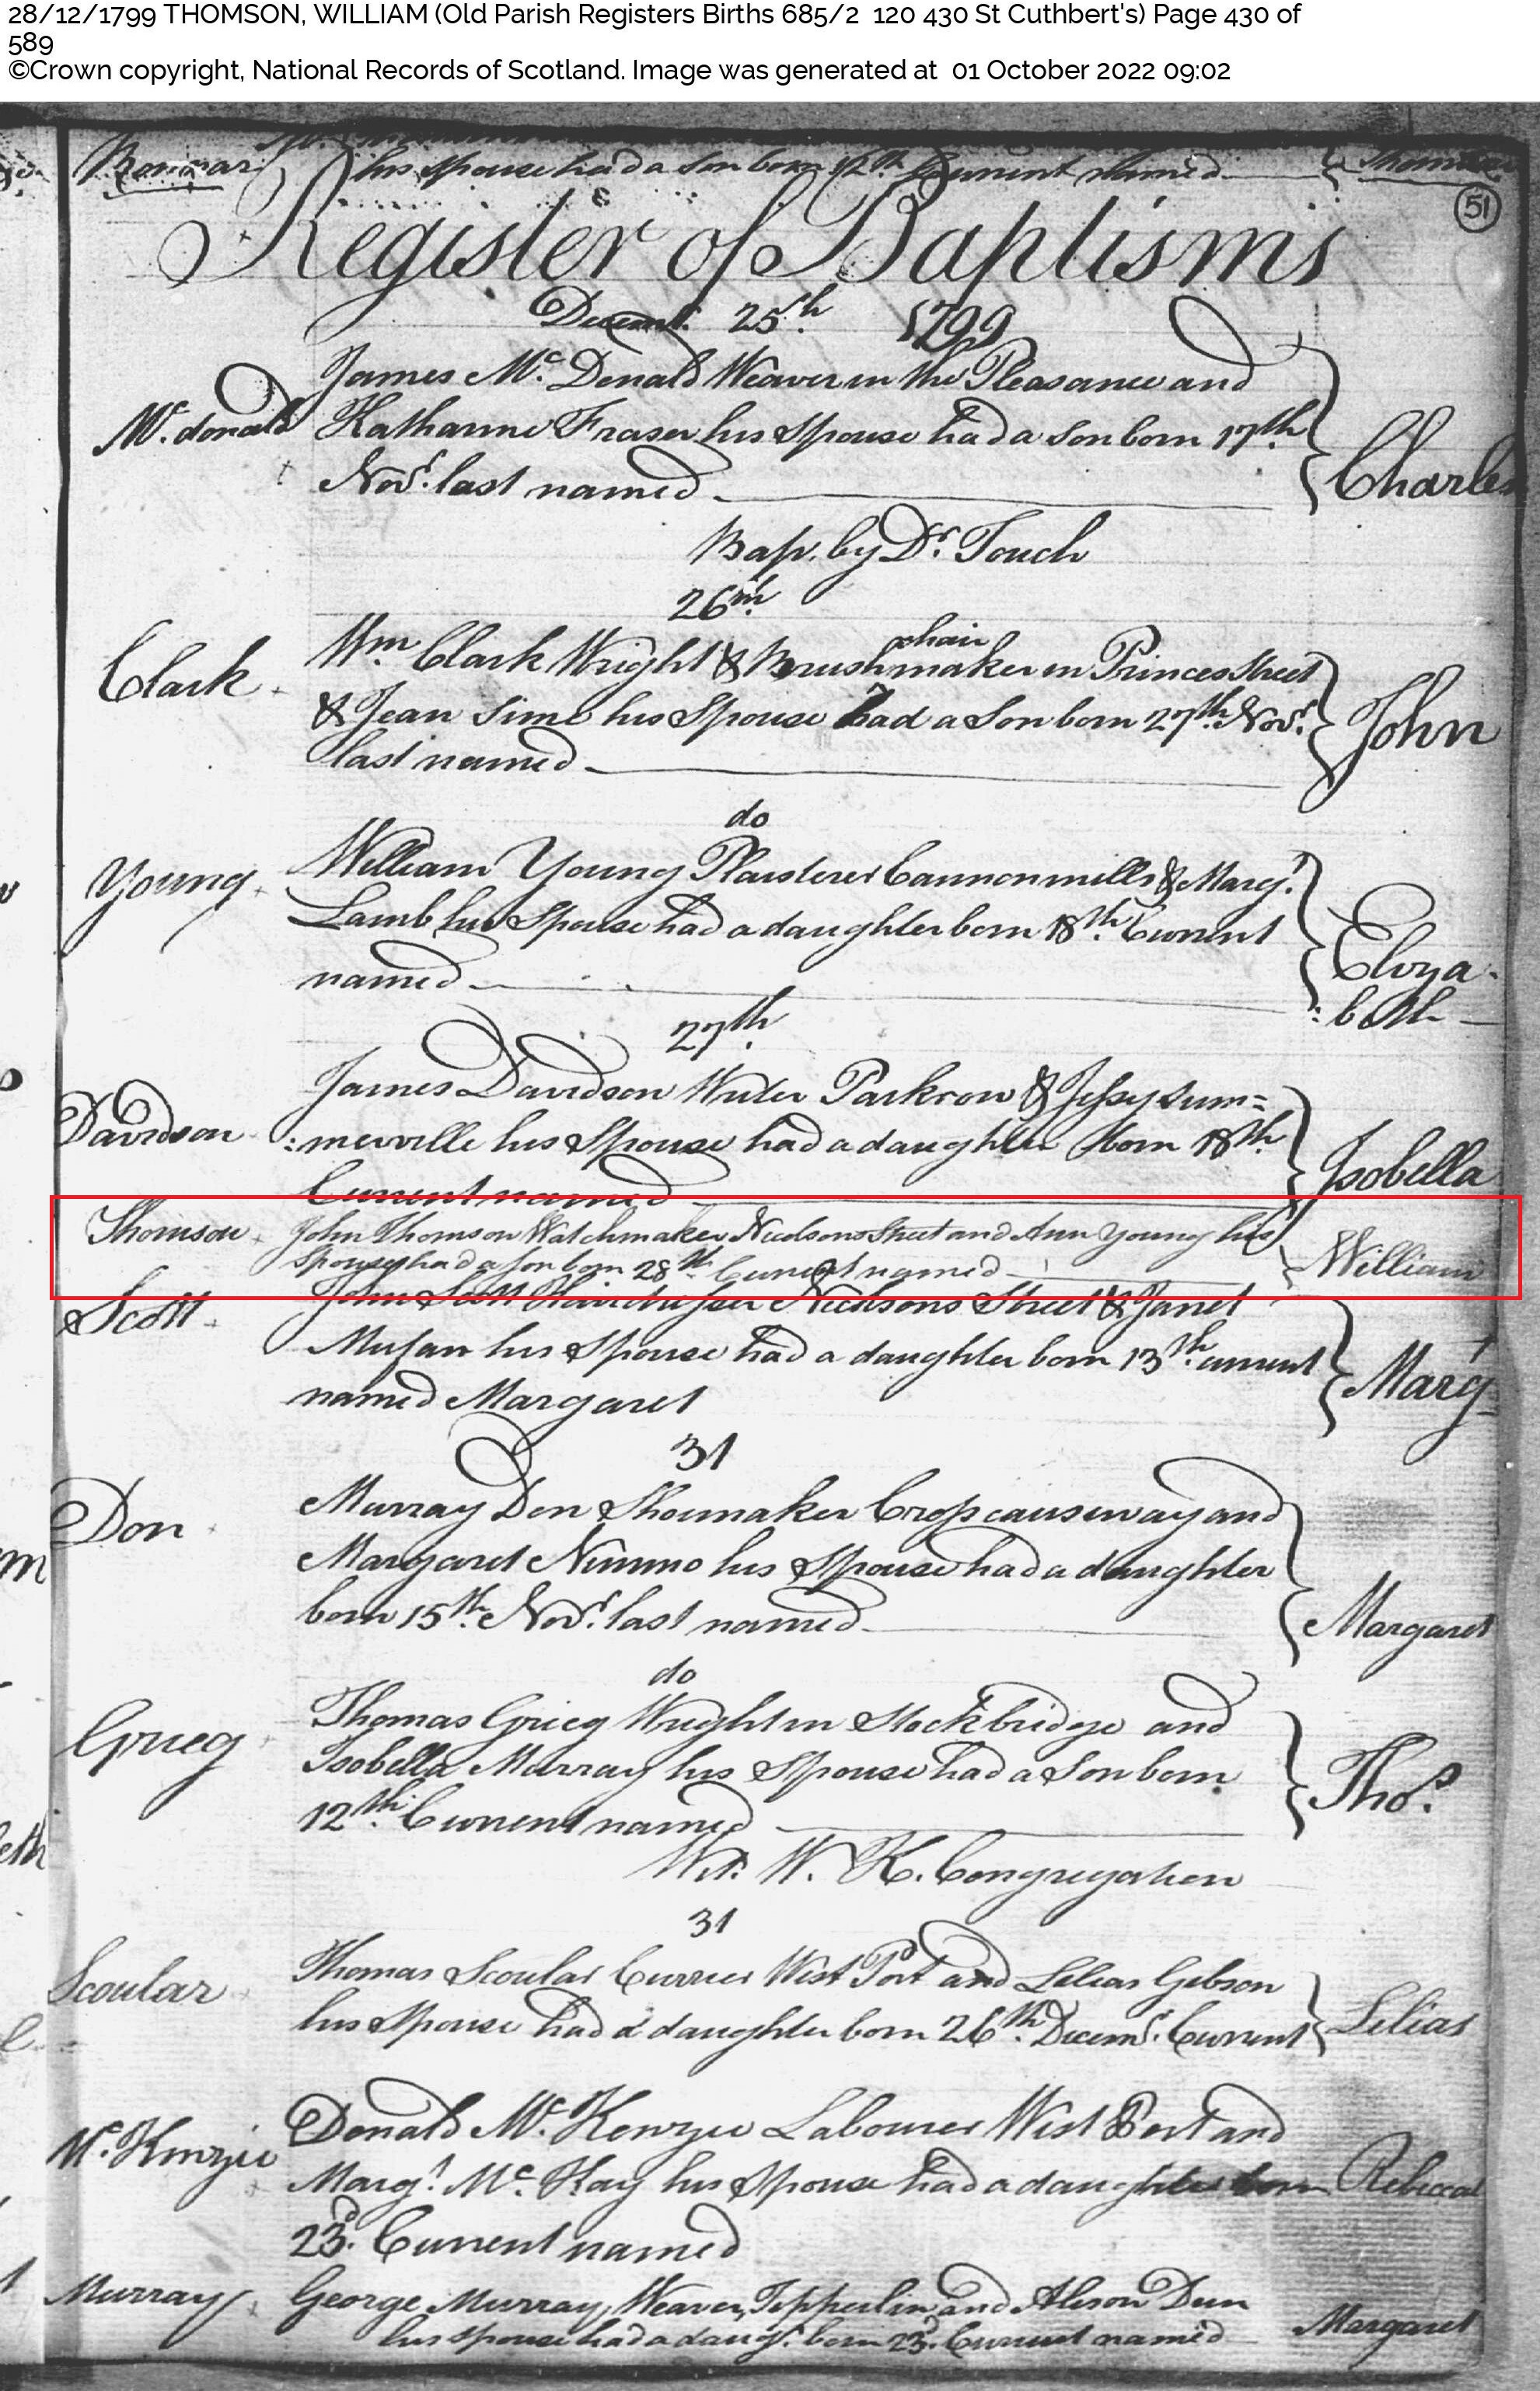 28/12/1799 THOMSON, WILLIAM (Old Parish Registers Births 685/2 120 430 St Cuthbert's) Page 430 of
589
©Crown copyright, National Records of Scotland. Image was generated at 01 October 2022 09:02
his Spouse had a Son born 12th Current named Thomas
51
Register of Baptisms
Decemr. 25th. 1799
James Mc. Donald Weaver in the Pleasance and
Mc. donald Katharine Fraser his Spouse had a Son born 17th.
Novr. last named Charles
Bap. by Dr. Touch
26th.
chair
Clark Wm Clark Wright & Brushmaker in Princes Street
& Jean Sime his Spouse had a Son born 27th. Novr. John
last named
do
Young William Young Plaisterer Cannonmills & Margt.
Lamb his Spouse had a daughter born 18th. Current
named Elyza-
:beth
27th.
James Davidson Writer Parkrow & Jessy Sum=
Davidson :merville his Spouse had a daughter born 18th.
Current named Isobella
Thomson John Thomson Watchmaker Nicolsons Street and Ann Young his
Spouse had a Son born 28th Current named William
Scott John Scott Hairdresser Nicolsons Street & Janet
his Spouse had a daughter born 13th. current
named Margaret Margt
31
Don Murray Don Shoemaker Crosscauseway and
Margaret Nimmo his Spouse had a daughter
born 15th. Novr. last named Margaret
do
Grieg Thomas Grieg Wright in Stockbridge and
Isobella Murray his Spouse had a Son born
12th. Current named Thos.
Wit. W. K. Congregation
31
Scoular Thomas Scoular Currier West Port and Lilias Gibson
his Spouse had a daughter born 26th. Decemr. Current Lilias
Mc. Kenzie Donald Mc. Kenzie Labourer West Port and
Margt. Mc. Kay his Spouse had a daughter born Rebecca
23d. Current named
Murray George Murray Weaver and Alison Dun
his spouse had a daugr. born 23d. Current named Margaret